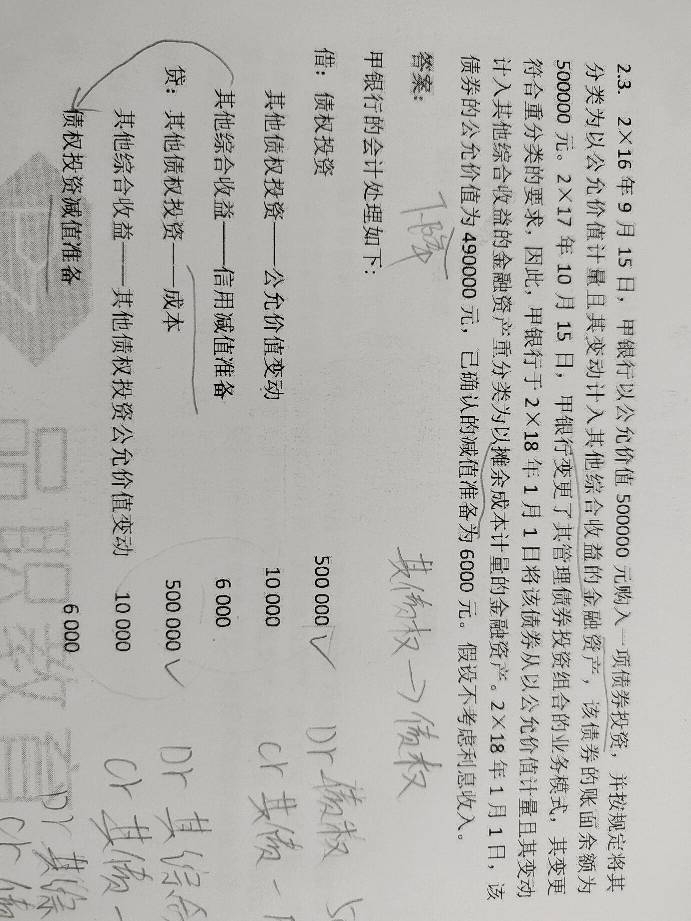 2.3. 2×16 年 9 月 15 日，甲银行以公允价值 500000 元购入一项债券投资，并按规定将其
分类为以公允价值计量且其变动计入其他综合收益的金融资产，该债券的账面余额为
500000 元。2×17 年 10 月 15 日，甲银行变更了其管理债券投资组合的业务模式，其变更
符合重分类的要求，因此，甲银行于 2×18 年 1 月 1 日将该债券从以公允价值计量且其变动
计入其他综合收益的金融资产重分类为以摊余成本计量的金融资产。2×18 年 1 月 1 日，该
债券的公允价值为 490000 元，已确认的减值准备为 6000 元。假设不考虑利息收入。
答案：
下降
其债权→债权
甲银行的会计处理如下：
借：债权投资 500 000 Dr 债权
其他债权投资——公允价值变动 10 000 Cr 其债-
其他综合收益——信用减值准备 6 000
贷：其他债权投资——成本 500 000 Dr 其综合
其他综合收益——其他债权投资公允价值变动 10 000 Cr 其债-
债权投资减值准备 6 000 Dr 其综
Cr 债
品职教育